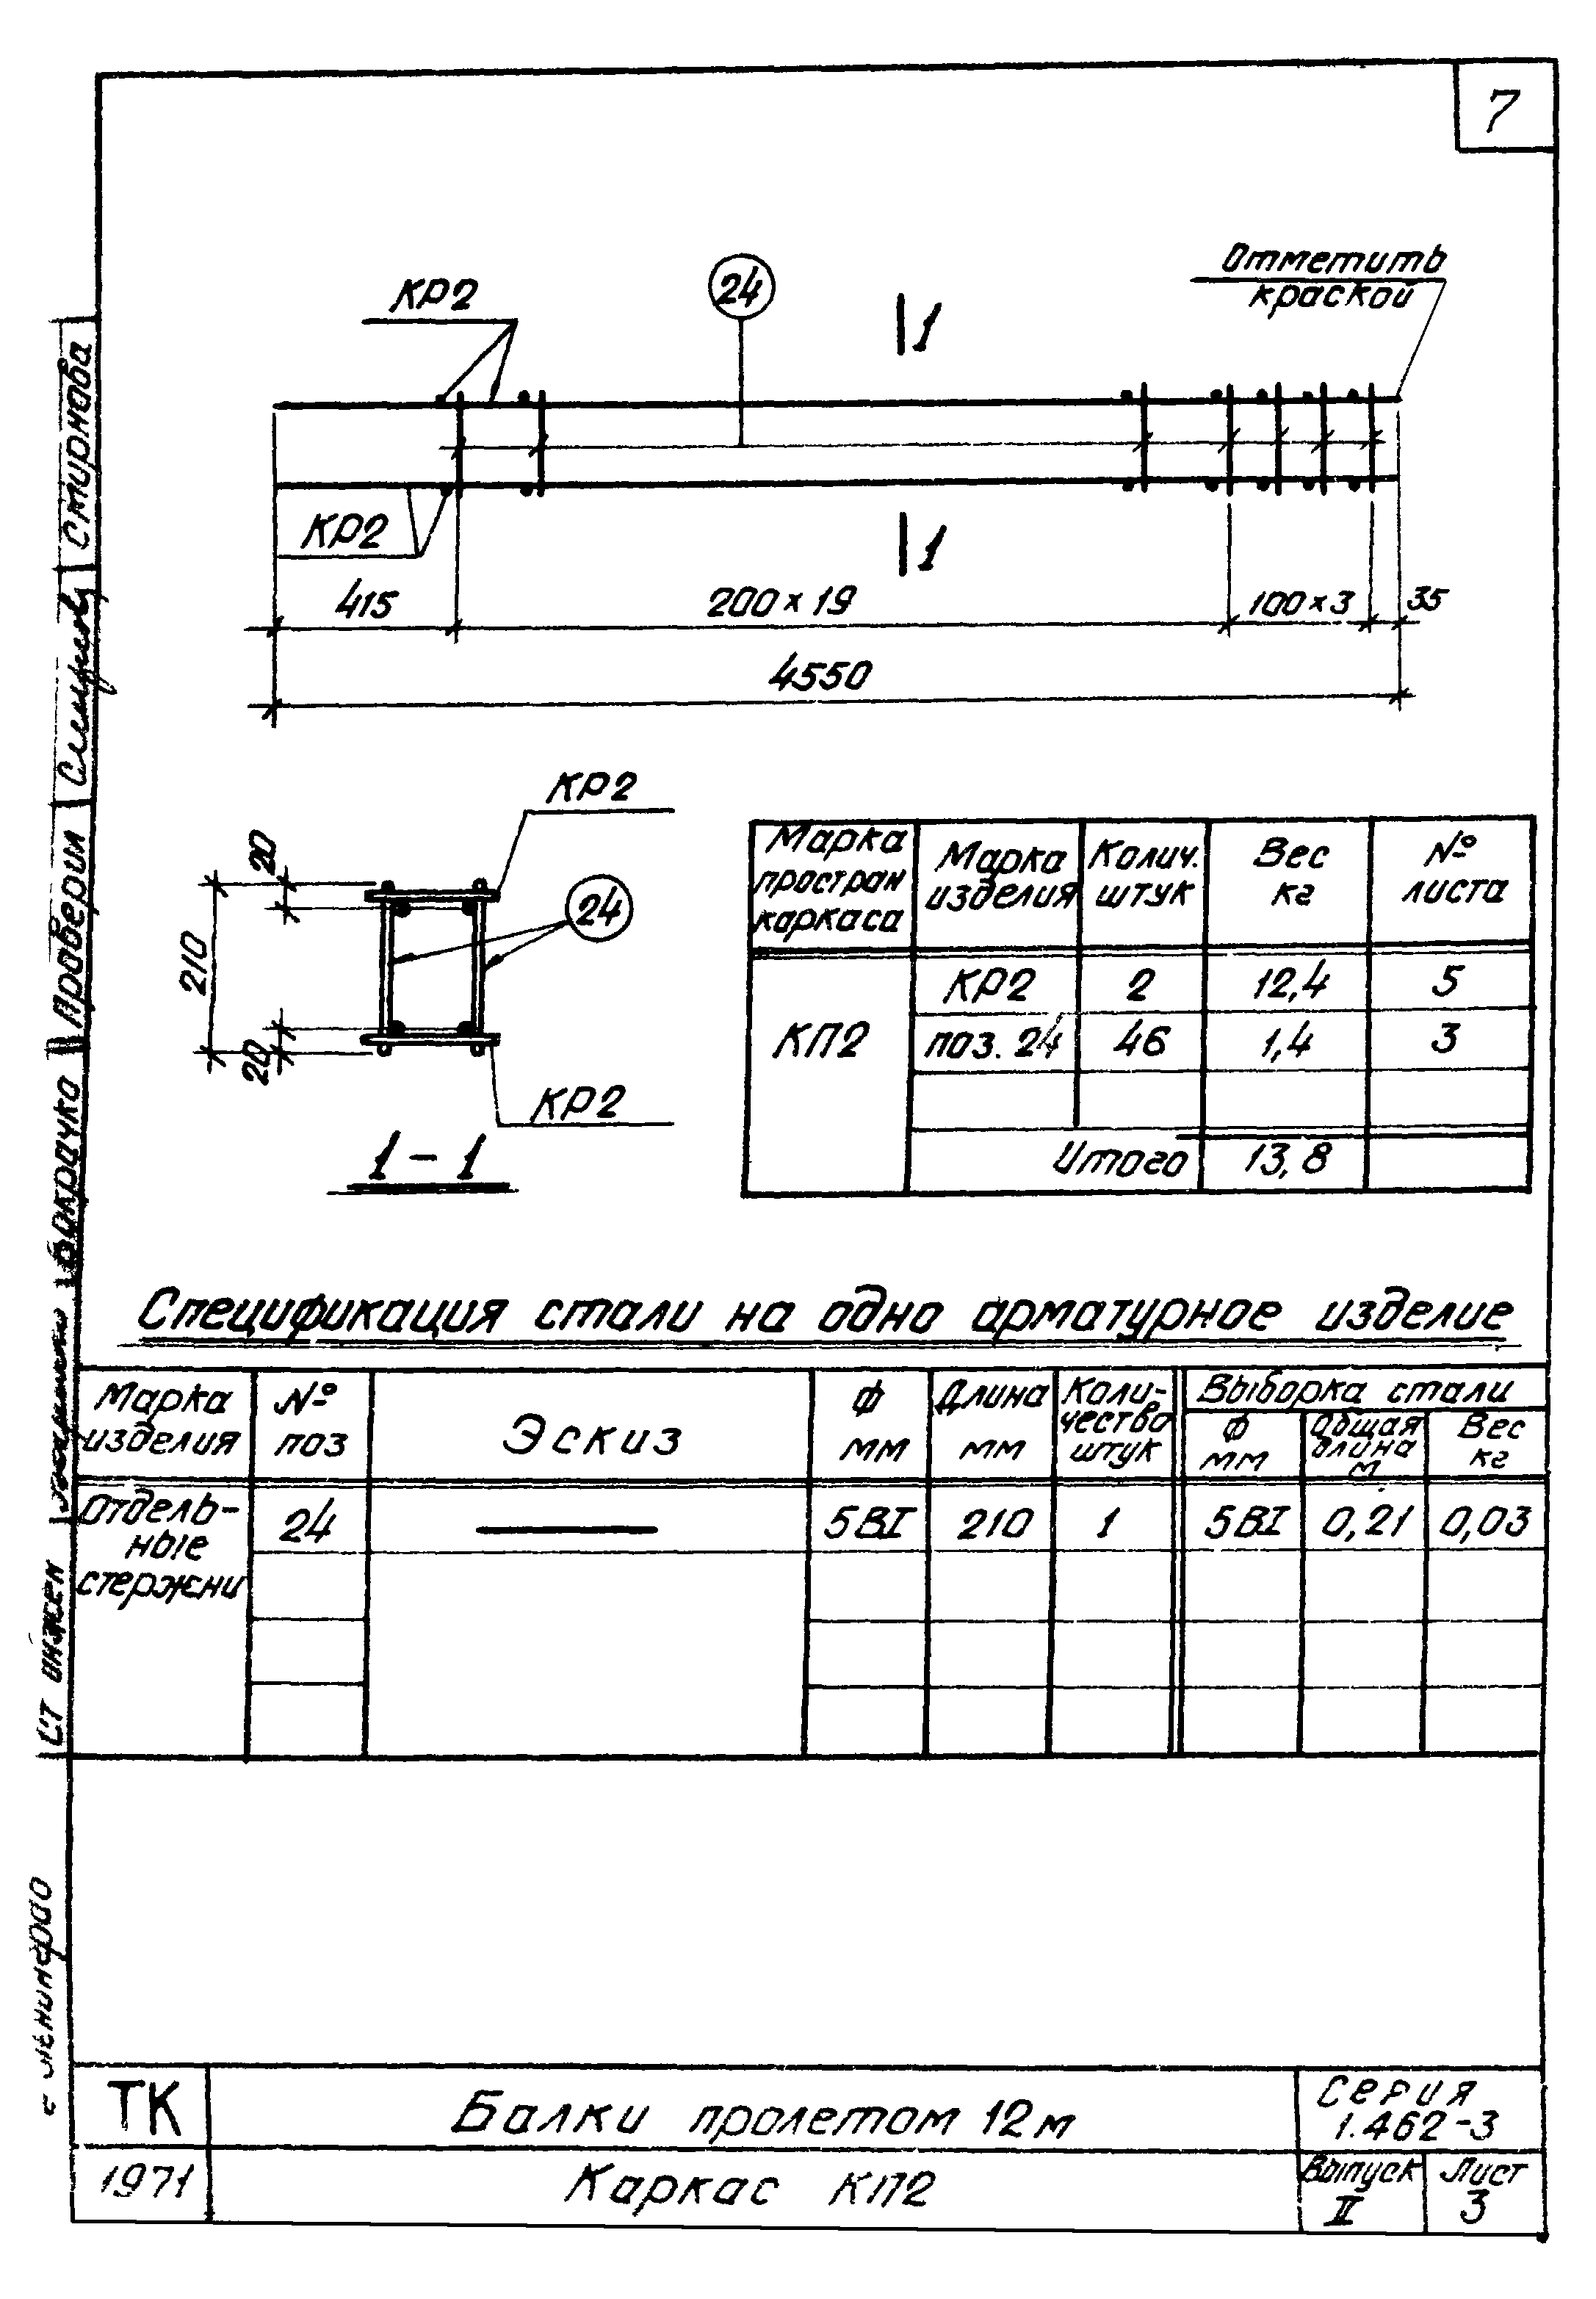 7
Отметить
краской
КР2
24
1
КР2
1
415
200×19
100×3
35
4550
КР2
20
24
210
20
КР2
1-1
Марка простран каркаса
Марка изделия
Колич. штук
Вес кг
№ листа
КП2
КР2 2 12,4 5
поз. 24 46 1,4 3
Итого 13,8
Спецификация стали на одно арматурное изделие
Марка изделия
№ поз
Эскиз
Ф мм
Длина мм
Количество штук
Выборка стали
Ф мм
Общая длина м
Вес кг
Отдель-
ные
стержни
24 5ВI 210 1 5ВI 0,21 0,03
ТК
Балки пролетом 12м
Серия
1.462-3
1971
Каркас КП2
Выпуск
II
Лист
3
Смирнова
Проверил
Ст инжен